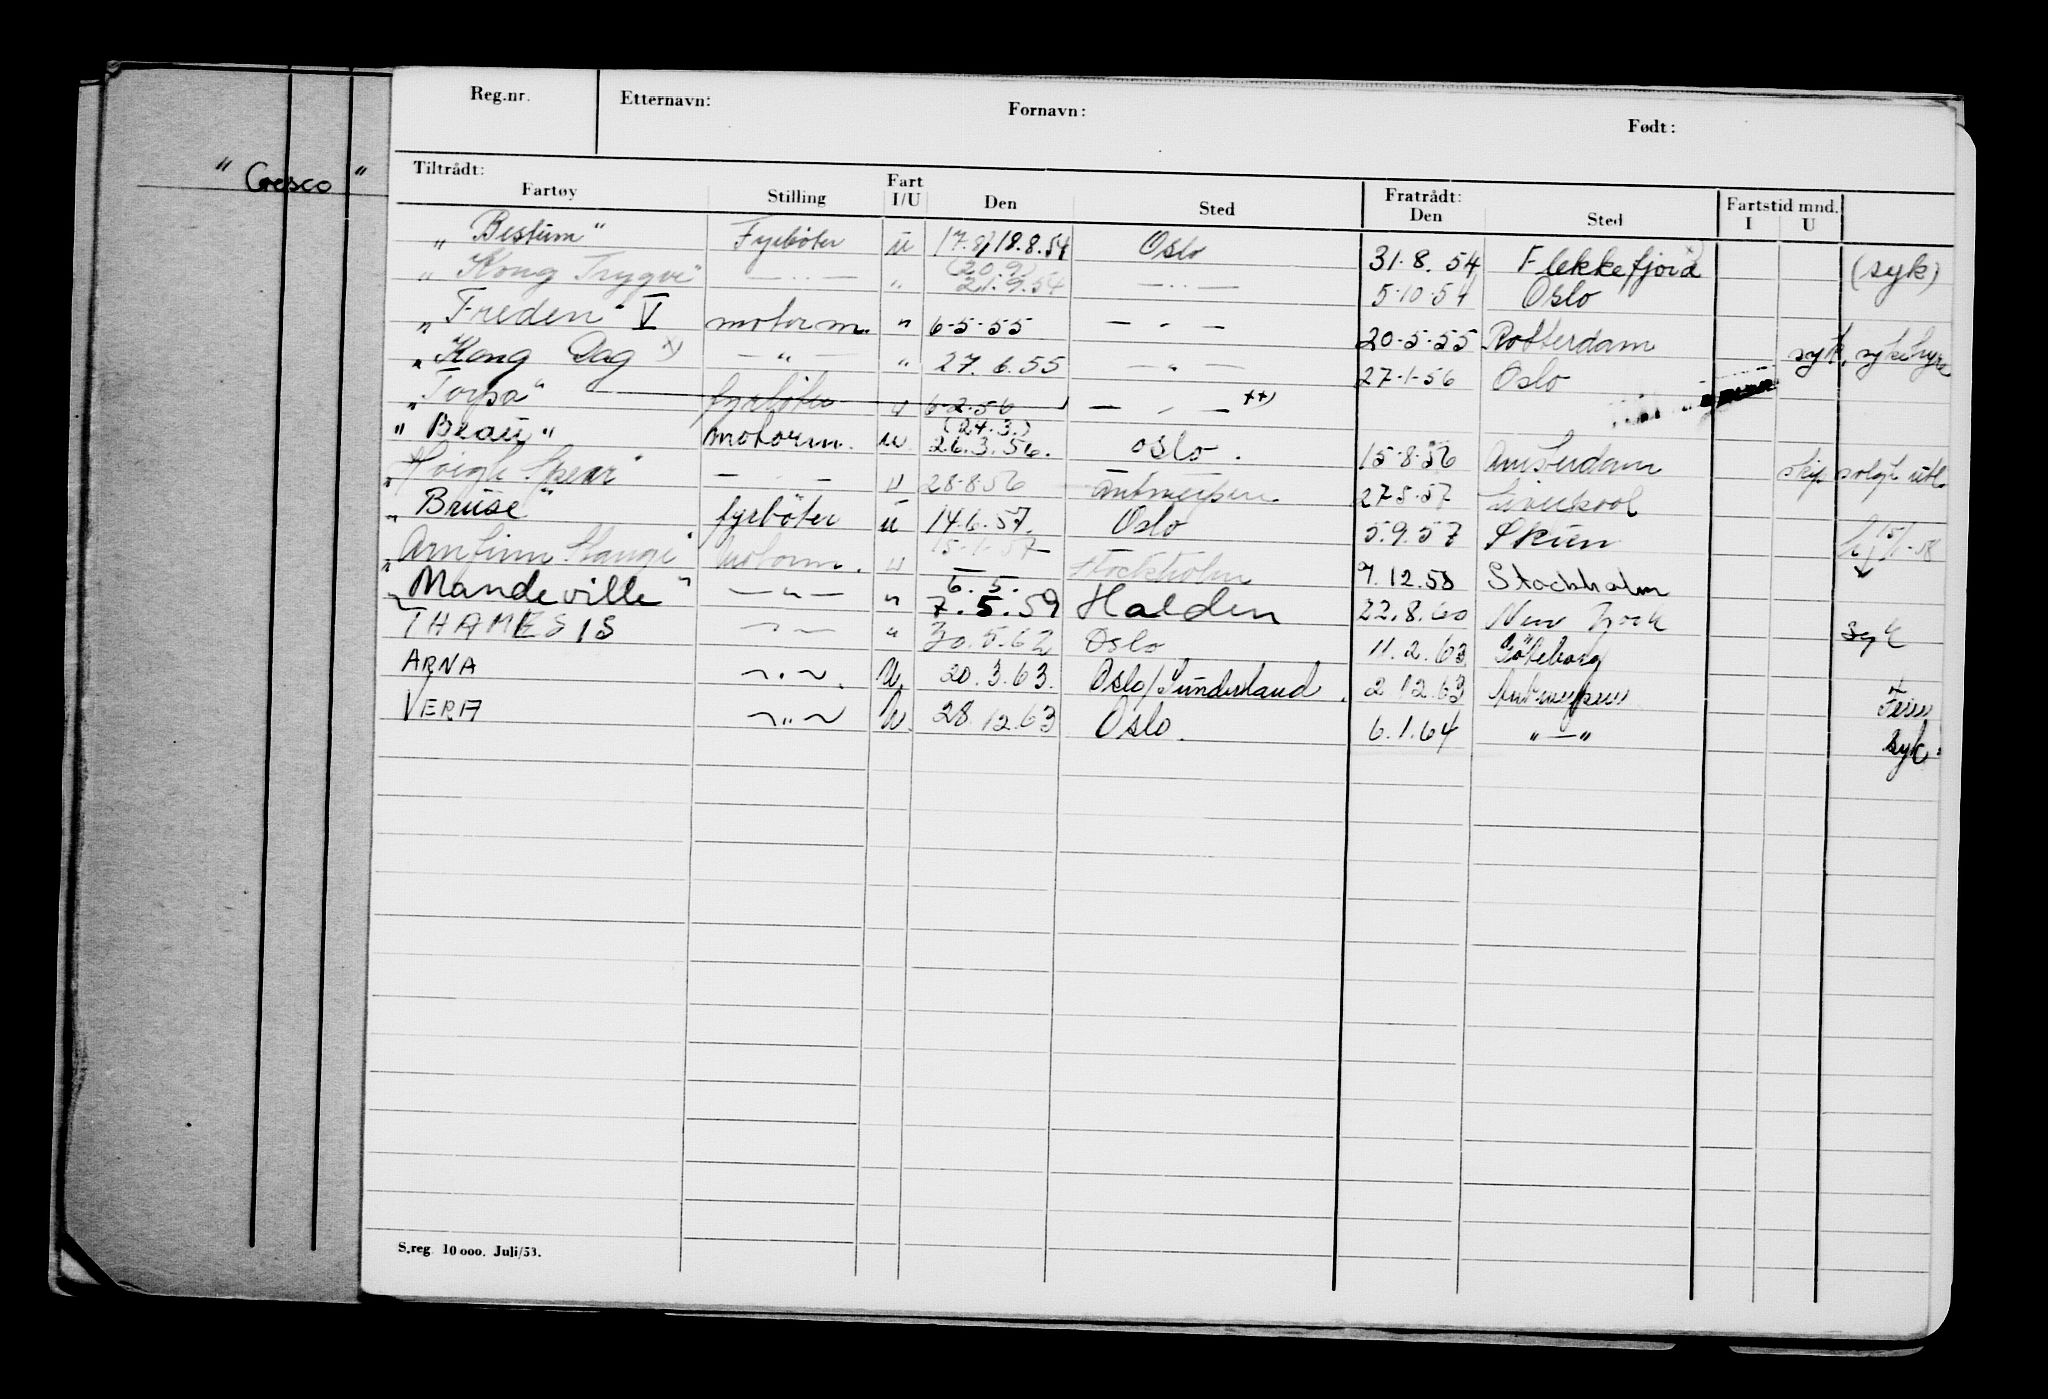 Reg.nr. Etternavn: Fornavn: Født:
" Cresco "
Tiltrådt: Fratrådt:
Fartøy Stilling Fart I/U Den Sted Den Sted Fartstid mnd. I U
" Bestum " Fyrbøter u 17.8/18.8.54 Oslo 31.8.54 Flekkefjord x) (syk)
" Kong Trygve " — " — " (20.9) 21.9.54 — " — 5.10.54 Oslo
" Freden " V motorm. " 6-5-55 — " — 20-5-55 Rotterdam syk, sykehyre
" Kong Dag x) — " — " 27.6.55 — " — 27-1-56 Oslo
" Torpa " fyrbøter u 6-2-56 — " — xx)
" Beau " motorm. u (24.3.) 26.3.56. Oslo. 15-8-56 Amsterdam skip solgt utl.
" Høegh Spear " — " — u 28-8-56 Antwerpen 27-5-57 Liverpool
" Bruse " fyrböter u 14.6.57. Oslo 5.9.57 Skien
" Arnfinn Stange " motorm. u Stockholm 9.12.58 Stockholm
" Mandeville " — " — " 6.5. 7.5.59 Halden 22.8.60 New York syk
THAMESIS — " — " 30.5.62 Oslo 11.2.63 Göteborg
ARNA — " — u. 20.3.63. Oslo/Sunderland. 2.12.63 Antwerpen Ferie
VERA — " — u. 28.12.63 Oslo. 6.1.64 " — " syk.
S.reg. 10 000. Juli/53.